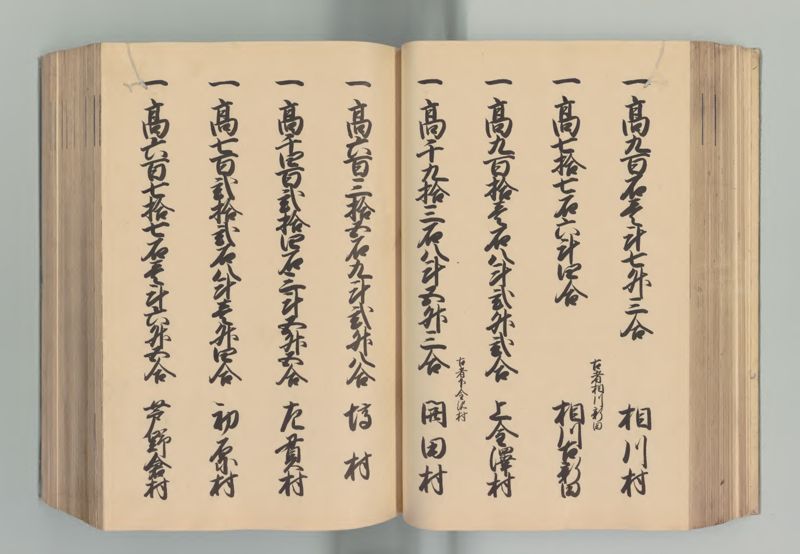 一高九百石壱斗七升三合 相川村
一高七拾七石六斗四合 古者相川新田 相川古新田
一高九百拾壱石八斗弐升弐合 上金澤村
一高千九拾三石八斗五升三合 古者下金沢村 岡田村
一高六百三拾五石九斗弐升八合 塙村
一高千四百弐拾四石三斗五升五合 左貫村
一高七百弐拾弐石八斗壱升四合 初原村
一高六百七拾七石壱斗六升五合 芦野倉村